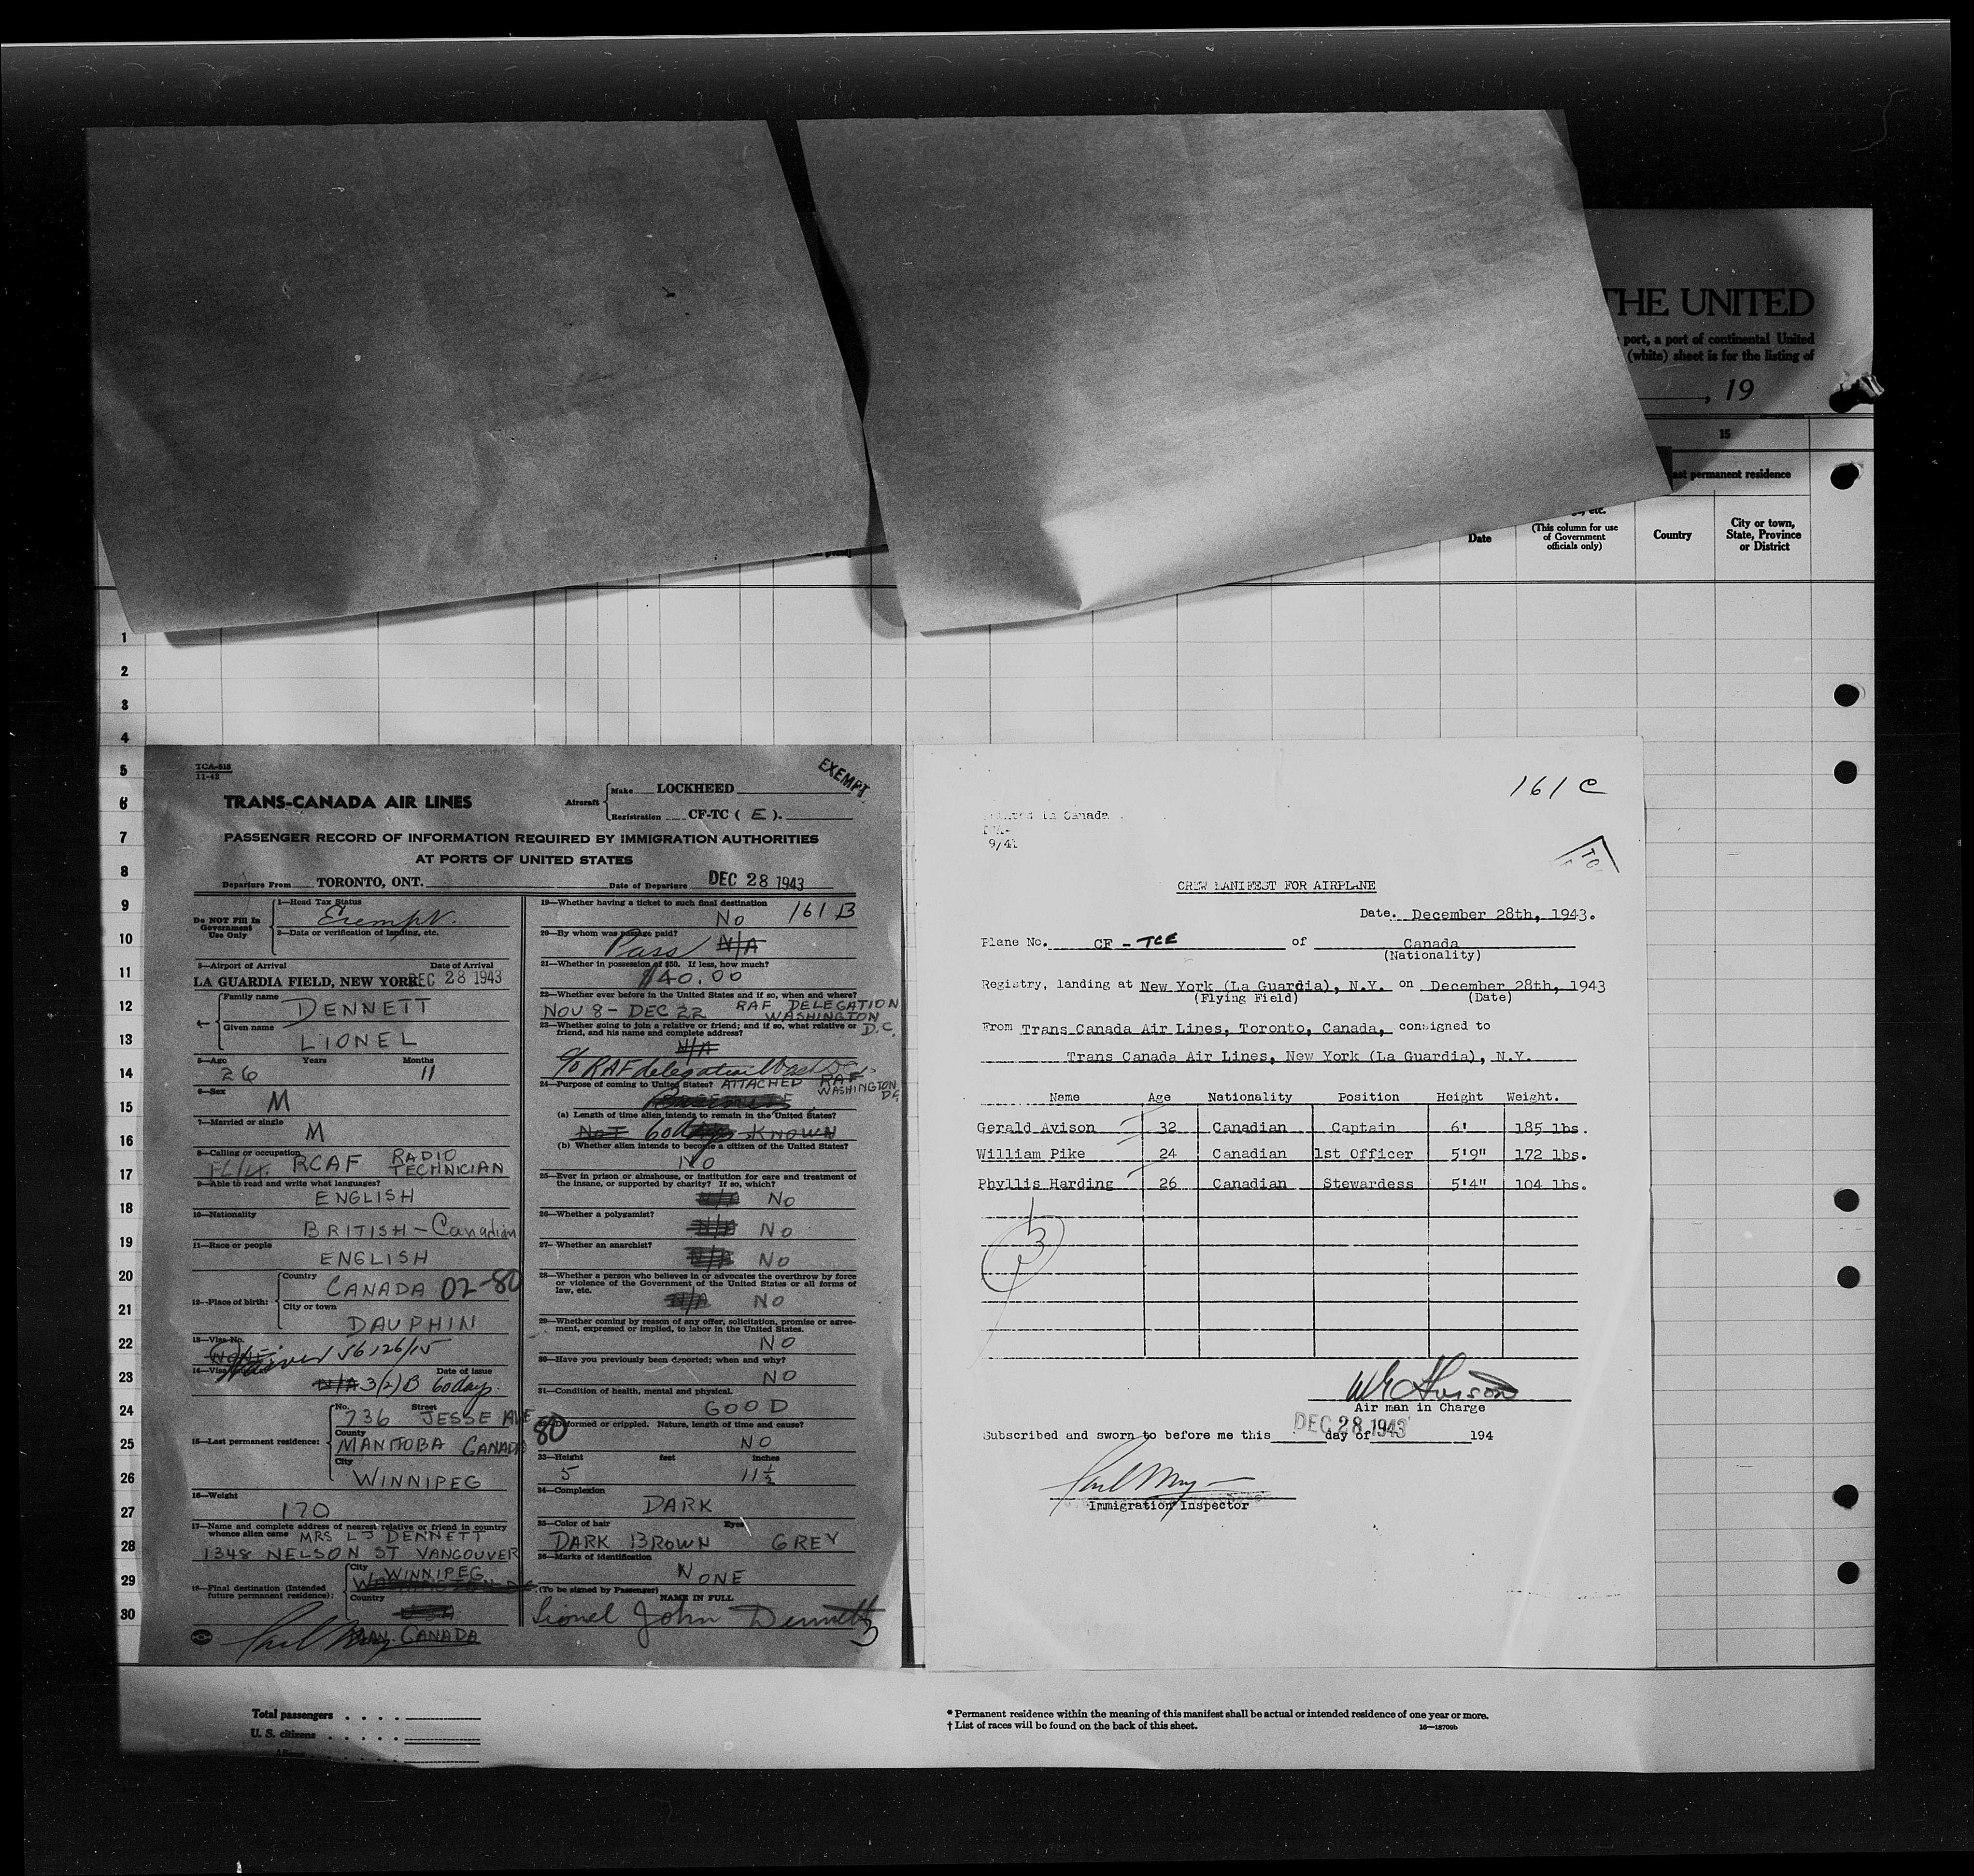 THE UNITED
port, a port of continental United
(white) sheet is for the listing of
, 19
15
permanent residence
Date
(This column for use
of Government
officials only)
Country
City or town,
State, Province
or District
1
2
3
4
5
6
7
8
9
10
11
12
13
14
15
16
17
18
19
20
21
22
23
24
25
26
27
28
29
30
TCA-515
11-42
EXEMPT
TRANS-CANADA AIR LINES
Aircraft
Make LOCKHEED
Registration CF-TC ( E ).
PASSENGER RECORD OF INFORMATION REQUIRED BY IMMIGRATION AUTHORITIES
AT PORTS OF UNITED STATES
Departure From TORONTO, ONT. Date of Departure DEC 28 1943
Do NOT Fill In
Government
Use Only
1—Head Tax Status
Exempt.
2—Data or verification of landing, etc.
3—Airport of Arrival Date of Arrival
LA GUARDIA FIELD, NEW YORK DEC 28 1943
Family name DENNETT
Given name LIONEL
5—Age Years Months
26 11
6—Sex
M
7—Married or single
M
8—Calling or occupation
RCAF RADIO
TECHNICIAN
9—Able to read and write what languages?
ENGLISH
10—Nationality
BRITISH-Canadian
11—Race or people
ENGLISH
12—Place of birth:
Country
CANADA 02-80
City or town
DAUPHIN
13—Visa No.
NONE
Waiver 56126/15
Date of issue
N/A 3(2)B 60 days.
15—Last permanent residence:
No. Street
736 JESSE AVE
County
MANITOBA CANADA
City
WINNIPEG
16—Weight
170
17—Name and complete address of nearest relative or friend in country
whence alien came MRS L J DENNETT
1348 NELSON ST VANCOUVER
18—Final destination (Intended
future permanent residence):
City WINNIPEG
Country
MAN. CANADA
19—Whether having a ticket to such final destination
No 161 B
20—By whom was passage paid?
Pass N/A
21—Whether in possession of $50. If less, how much?
$40.00
22—Whether ever before in the United States and if so, when and where?
NOV 8 - DEC 22 RAF DELEGATION
WASHINGTON
D.C.
23—Whether going to join a relative or friend; and if so, what relative or
friend, and his name and complete address?
N/A
c/o RAF delegation Wash D.C.
24—Purpose of coming to United States? ATTACHED RAF
WASHINGTON
DC
(a) Length of time alien intends to remain in the United States?
NOT 60 days KNOWN
(b) Whether alien intends to become a citizen of the United States?
NO
25—Ever in prison or almshouse, or institution for care and treatment of
the insane, or supported by charity? If so, which?
N/A No
26—Whether a polygamist?
N/A No
27—Whether an anarchist?
N/A No
28—Whether a person who believes in or advocates the overthrow by force
or violence of the Government of the United States or all forms of
law, etc.
N/A No
29—Whether coming by reason of any offer, solicitation, promise or agree-
ment, expressed or implied, to labor in the United States.
NO
30—Have you previously been deported; when and why?
NO
31—Condition of health, mental and physical.
GOOD
80
32—Deformed or crippled. Nature, length of time and cause?
NO
33—Height feet inches
5 11½
34—Complexion
DARK
35—Color of hair Eyes
DARK BROWN GREY
36—Marks of identification
NONE
(To be signed by Passenger) NAME IN FULL
Lionel John Dennett
3
161 C
Printed in Canada
9/41
CREW MANIFEST FOR AIRPLANE
Date. December 28th, 1943.
Plane No. CF - TCE of Canada
(Nationality)
Registry, landing at New York (La Guardia), N.Y. on December 28th, 1943
(Flying Field) (Date)
From Trans Canada Air Lines, Toronto, Canada, consigned to
Trans Canada Air Lines, New York (La Guardia), N.Y.
Name Age Nationality Position Height Weight.
Gerald Avison 32 Canadian Captain 6' 185 lbs.
William Pike 24 Canadian 1st Officer 5'9" 172 lbs.
Phyllis Harding 26 Canadian Stewardess 5'4" 104 lbs.
3
Air man in Charge
Subscribed and sworn to before me this DEC 28 1943 day of 194
Paul May
Immigration Inspector
Total passengers . . . .
U. S. citizens . . . . .
* Permanent residence within the meaning of this manifest shall be actual or intended residence of one year or more.
† List of races will be found on the back of this sheet.
16—18709b